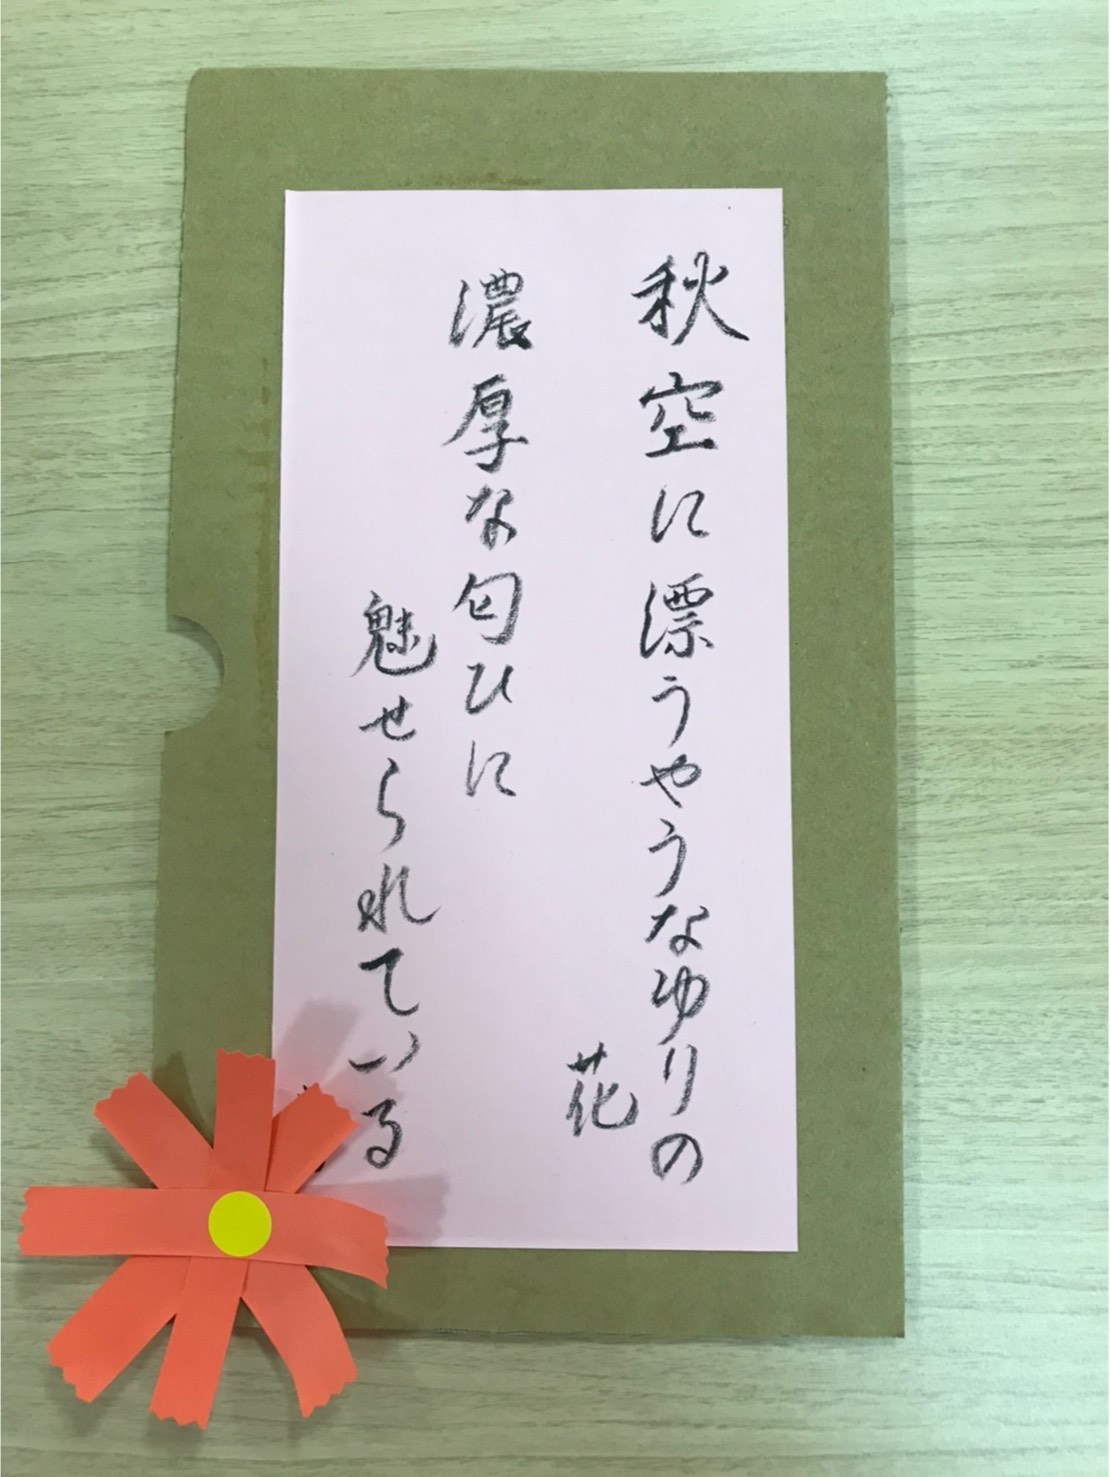 秋空に漂うやうなゆりの
花
濃厚な匂ひに
魅せられている